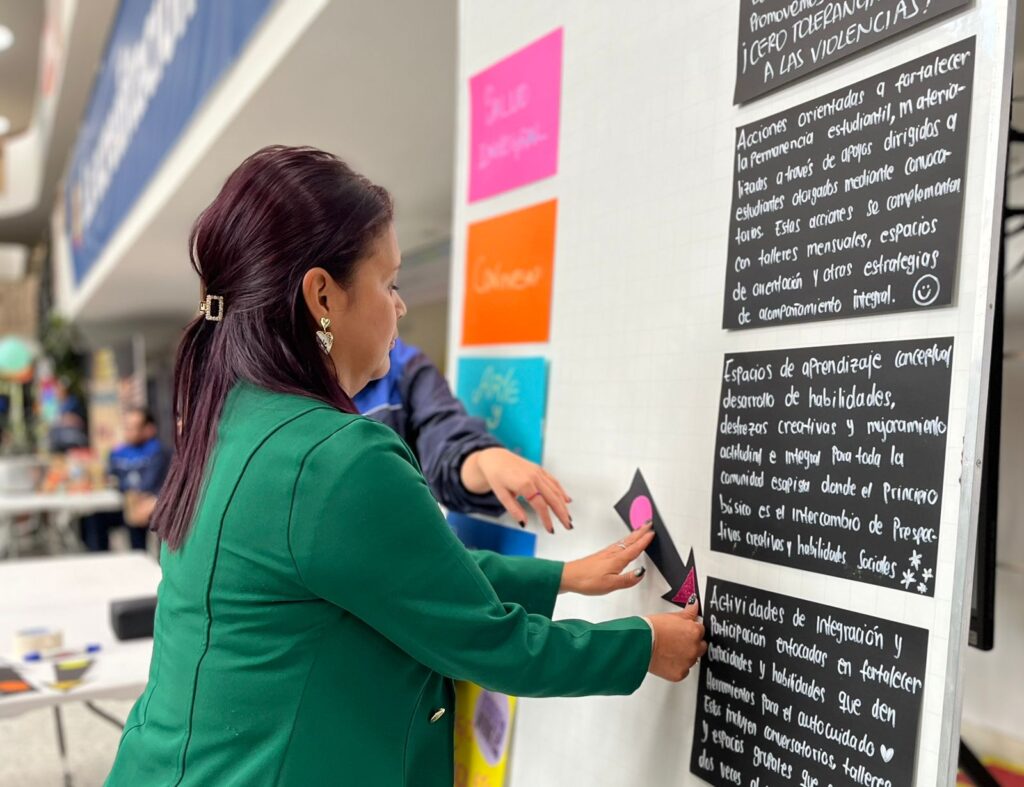 Salud
Integral
Conver
Arte
y
Promovemos
¡CERO TOLERANCIA
A LAS VIOLENCIAS!
Acciones orientadas a fortalecer
la permanencia estudiantil, materia-
lizadas a través de apoyos dirigidos a
estudiantes otorgados mediante convoca-
torias. Estas acciones se complementan
con talleres mensuales, espacios
de orientación y otras estrategias
de acompañamiento integral.
Espacios de aprendizaje conceptual
desarrollo de habilidades,
destrezas creativas y mejoramiento
actitudinal e integral para toda la
comunidad esapista donde el Principio
básico es el intercambio de Prespec-
tivas creativas y habilidades Sociales
Actividades de integración y
Participación enfocadas en fortalecer
Capacidades y habilidades que den
Herramientas para el autocuidado
Estas incluyen conversatorios, talleres
y espacios grupales que
dos veces al